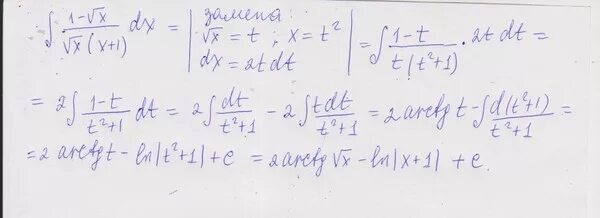 ∫ (1-√x)/(√x(x+1)) dx = | замена: √x = t ; x = t² dx = 2tdt | = ∫ (1-t)/(t(t²+1)) · 2t dt =
= 2∫ (1-t)/(t²+1) dt = 2∫ dt/(t²+1) - 2∫ tdt/(t²+1) = 2 arctg t - ∫ d(t²+1)/(t²+1) =
= 2 arctg t - ln|t²+1| + c = 2 arctg √x - ln|x+1| + c.